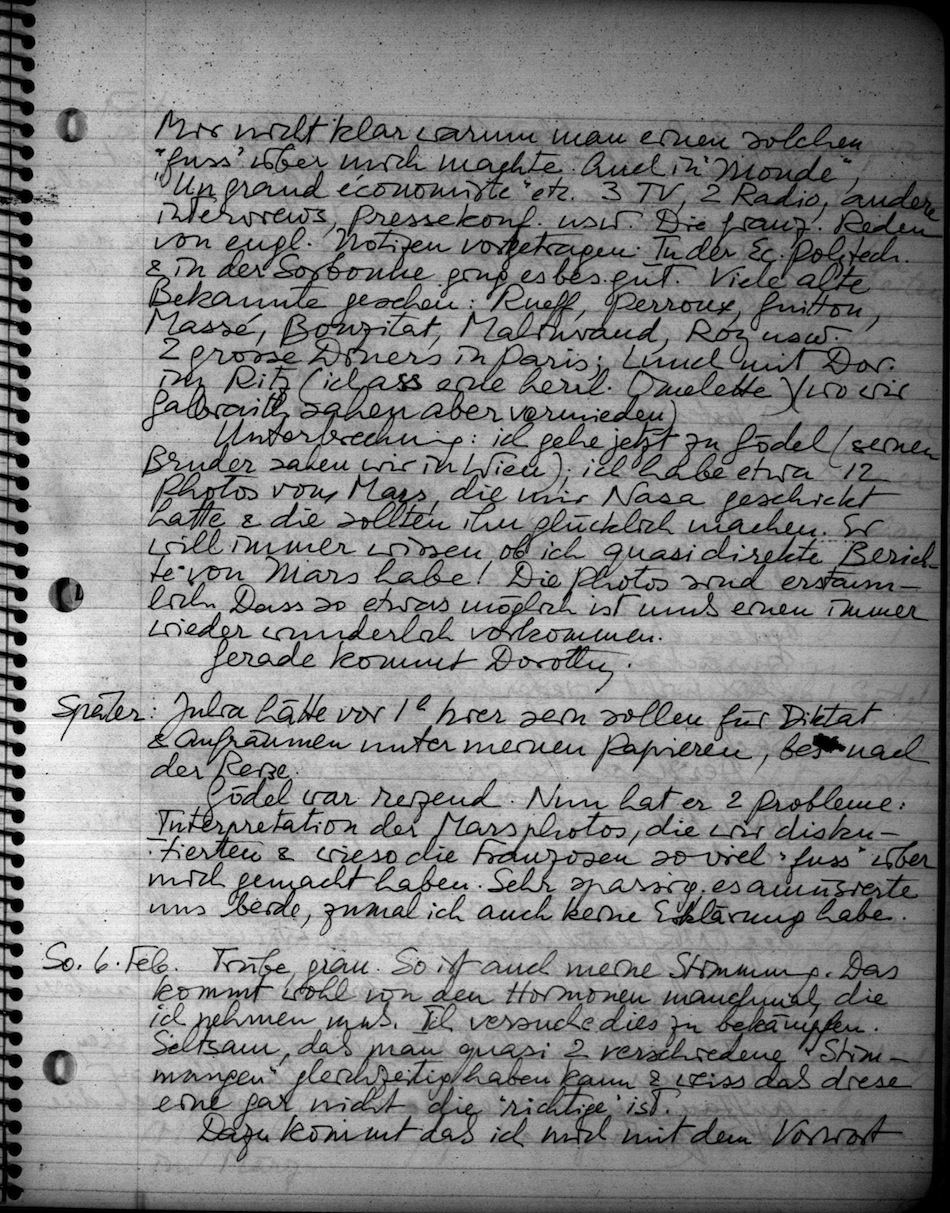 Mir nicht klar warum man einen solchen
"fuss" über mich machte. Auch in "Monde",
"Un grand économiste" etc. 3 TV, 2 Radio, andere
interviews, Pressekonf. usw. Die franz. Reden
von engl. Notizen vorgetragen. In der Ec. Polytech.
& in der Sorbonne ging es bes. gut. Viele alte
Bekannte gesehen: Rueff, Perroux, Guitton,
Massé, Bouzitat, Malinvaud, Roy usw.
2 grosse Diners in Paris; Lunch mit Dor.
im Ritz (ich ass eine herrl. Omelette) (wo wir
Galbraith sahen aber vermieden)
Unterbrechung: ich gehe jetzt zu Gödel (seinen
Bruder sahen wir in Wien); ich habe etwa 12
Photos vom Mars, die mir Nasa geschickt
hatte & die sollten ihn glücklich machen. Er
will immer wissen ob ich quasi direkte Berich-
te von Mars habe! Die Photos sind erstaun-
lich. Dass so etwas möglich ist muss einen immer
wieder wunderlich vorkommen.
Gerade kommt Dorothy.
Später: Julia hätte vor 1h hier sein sollen für Diktat
& Aufräumen unter meinen Papieren, bes. nach
der Reise.
Gödel war reizend. Nun hat er 2 Probleme:
Interpretation der Marsphotos, die wir disku-
tierten & wieso die Franzosen so viel "fuss" über
mich gemacht haben. Sehr spassig. es amüsierte
uns beide, zumal ich auch keine Erklärung habe.
So. 6. Feb. Trübe, grau. So ist auch meine Stimmung. Das
kommt wohl von den Hormonen manchmal, die
ich nehmen muss. Ich versuche dies zu bekämpfen.
Seltsam, das man quasi 2 verschiedene "Stim-
mungen" gleichzeitig haben kann & weiss das diese
eine gar nicht die "richtige" ist.
Dazu kommt das ich mich mit dem Vorwort